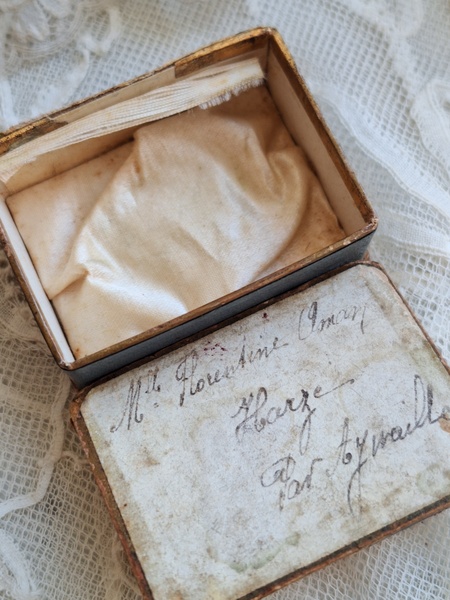 Mlle Florentine Oman
Harze
Par Aywaille